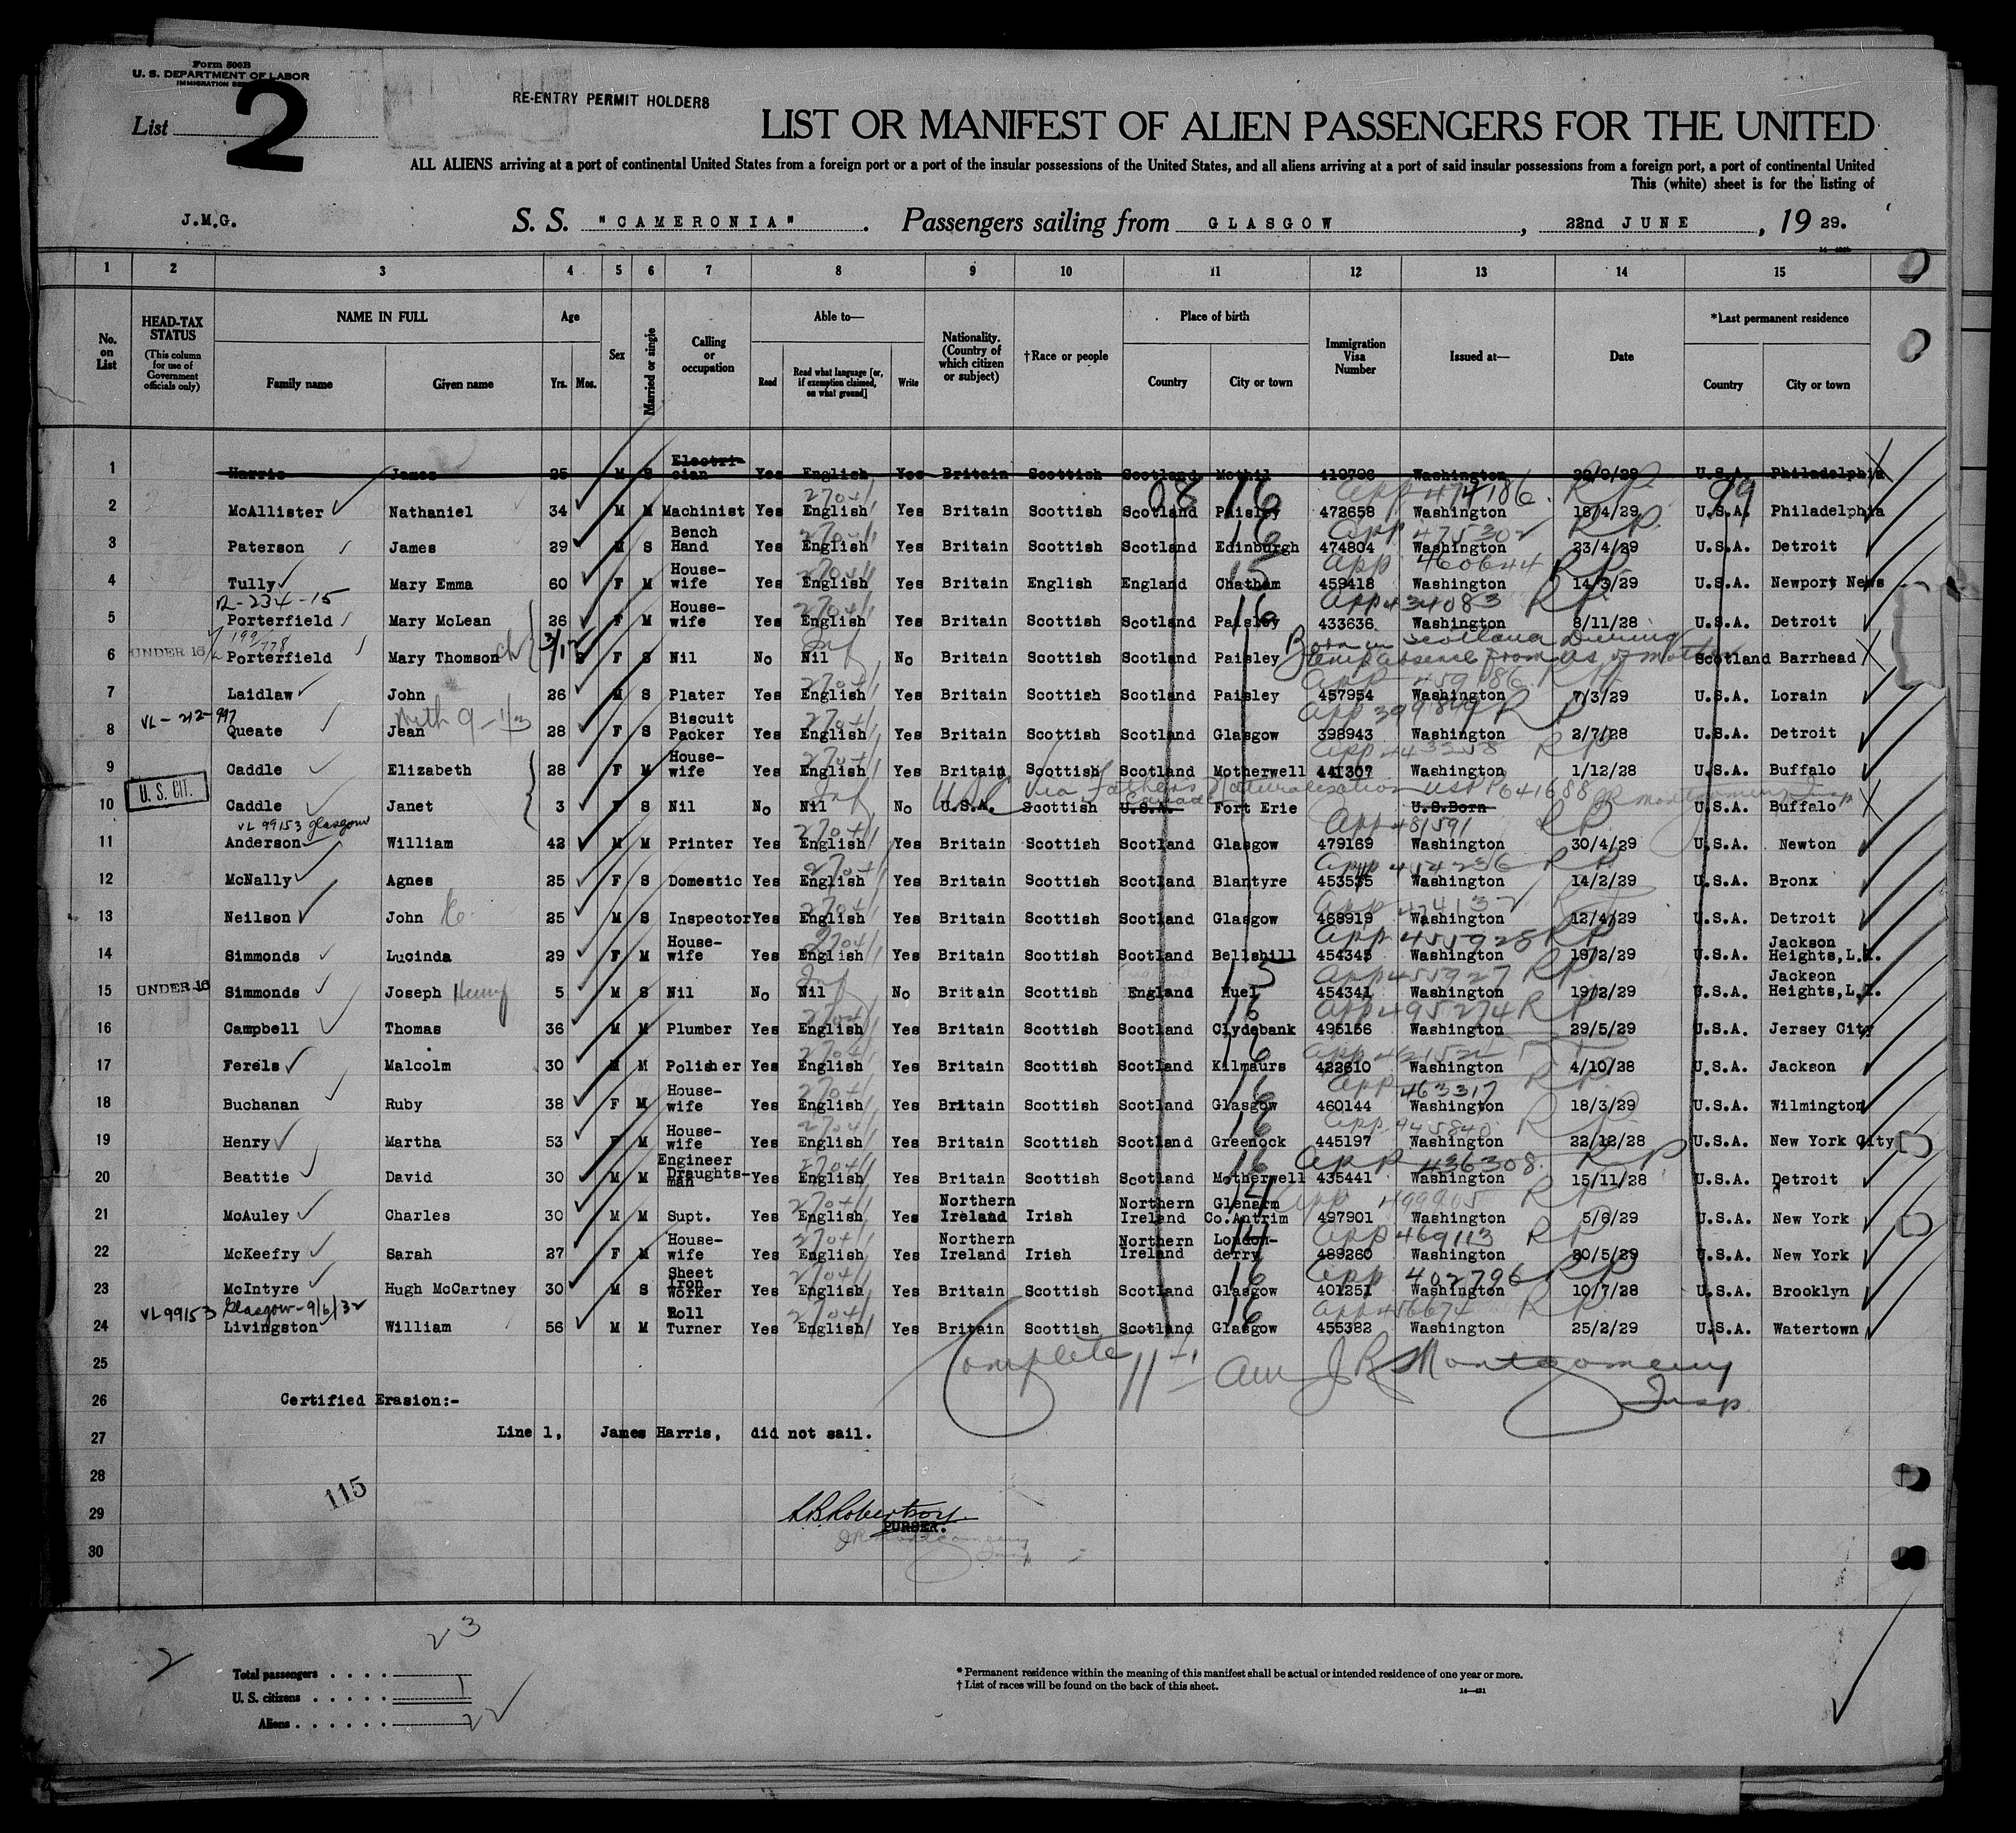 Form 500B
U. S. DEPARTMENT OF LABOR
IMMIGRATION
List 2
RE-ENTRY PERMIT HOLDERS
LIST OR MANIFEST OF ALIEN PASSENGERS FOR THE UNITED
ALL ALIENS arriving at a port of continental United States from a foreign port or a port of the insular possessions of the United States, and all aliens arriving at a port of said insular possessions from a foreign port, a port of continental United
This (white) sheet is for the listing of
J.M.G. S. S. "CAMERONIA". Passengers sailing from GLASGOW, 22nd JUNE, 19 29.
1 2 3 4 5 6 7 8 9 10 11 12 13 14 15
No. on List HEAD-TAX STATUS (This column for use of Government officials only) NAME IN FULL Family name Given name Age Yrs. Mos. Sex Married or single Calling or occupation Able to— Read Read what language [or, if exemption claimed, on what ground] Write Nationality. (Country of which citizen or subject) †Race or people Place of birth Country City or town Immigration Visa Number Issued at— Date *Last permanent residence Country City or town
1 Harris James 25 M S Electri-cian Yes English Yes Britain Scottish Scotland Methil Washington U.S.A. Philadelphia
app 474186 R P
2 McAllister Nathaniel 34 M M Machinist Yes English Yes Britain Scottish Scotland Paisley 472658 Washington 18/4/29 U.S.A. Philadelphia
app 475302 R P
3 Paterson James 29 M S Bench Hand Yes English Yes Britain Scottish Scotland Edinburgh 474804 Washington 23/4/29 U.S.A. Detroit
app 460644 R P
4 Tully Mary Emma 60 F M House-wife Yes English Yes Britain English England Chatham 459418 Washington 14/3/29 U.S.A. Newport News
12-234-15 app 434083 R P
5 Porterfield Mary McLean 26 F M House-wife Yes English Yes Britain Scottish Scotland Paisley 433636 Washington 8/11/28 U.S.A. Detroit
Born in Scotland During temp absence from US of mother
6 UNDER 16 Porterfield Mary Thomson F S Nil No Nil No Britain Scottish Scotland Paisley Scotland Barrhead
app 459086 R P
7 Laidlaw John 26 M S Plater Yes English Yes Britain Scottish Scotland Paisley 457954 Washington 7/3/29 U.S.A. Lorain
VL-212-997 app 399849 R P
8 Queate Jean 28 F S Biscuit Packer Yes English Yes Britain Scottish Scotland Glasgow 398943 Washington 2/7/28 U.S.A. Detroit
app 443258 R P
9 Caddle Elizabeth 28 F M House-wife Yes English Yes Britain Scottish Scotland Motherwell 441307 Washington 1/12/28 U.S.A. Buffalo
USC via Fathers Naturalization USPP 641688 JR Montgomery Insp
10 U. S. CIT. Caddle Janet 3 F S Nil No Nil No U.S.A. Scottish U.S.A. Canada Fort Erie U.S.Born U.S.A. Buffalo
VL 99153 glasgow app 481591 R P
11 Anderson William 42 M M Printer Yes English Yes Britain Scottish Scotland Glasgow 479169 Washington 30/4/29 U.S.A. Newton
app 454236 R P
12 McNally Agnes 25 F S Domestic Yes English Yes Britain Scottish Scotland Blantyre 453535 Washington 14/2/29 U.S.A. Bronx
app 474132 R P
13 Neilson John 25 M S Inspector Yes English Yes Britain Scottish Scotland Glasgow 468919 Washington 12/4/29 U.S.A. Detroit
app 455928 R P
14 Simmonds Lucinda 29 F M House-wife Yes English Yes Britain Scottish Scotland Bellshill 454345 Washington 19/2/29 U.S.A. Jackson Heights,L.I.
app 455927 R P
15 UNDER 16 Simmonds Joseph Henry 5 M S Nil No Nil No Britain Scottish England Huel 454341 Washington 19/2/29 U.S.A. Jackson Heights,L.I.
app 495274 R P
16 Campbell Thomas 36 M M Plumber Yes English Yes Britain Scottish Scotland Clydebank 495156 Washington 29/5/29 U.S.A. Jersey City
17 Ferels Malcolm 30 M M Polisher Yes English Yes Britain Scottish Scotland Kilmaurs 422610 Washington 4/10/28 U.S.A. Jackson
app 463317 R P
18 Buchanan Ruby 38 F M House-wife Yes English Yes Britain Scottish Scotland Glasgow 460144 Washington 18/3/29 U.S.A. Wilmington
app 445840 R P
19 Henry Martha 53 F M House-wife Yes English Yes Britain Scottish Scotland Greenock 445197 Washington 22/12/28 U.S.A. New York City
app 436308 R P
20 Beattie David 30 M M Engineer Draughts-man Yes English Yes Britain Scottish Scotland Motherwell 435441 Washington 15/11/28 U.S.A. Detroit
app 499905 R P
21 McAuley Charles 30 M M Supt. Yes English Yes Northern Ireland Irish Northern Ireland Glenarm Co.Antrim 497901 Washington 5/6/29 U.S.A. New York
app 469113 R P
22 McKeefry Sarah 27 F M House-wife Yes English Yes Northern Ireland Irish Northern Ireland London-derry 489260 Washington 20/5/29 U.S.A. New York
app 402796 R P
23 McIntyre Hugh McCartney 30 M S Sheet Iron Worker Yes English Yes Britain Scottish Scotland Glasgow 401251 Washington 10/7/28 U.S.A. Brooklyn
VL99153 Glasgow-9/6/32 app 456674 R P
24 Livingston William 56 M M Roll Turner Yes English Yes Britain Scottish Scotland Glasgow 455382 Washington 25/2/29 U.S.A. Watertown
25 Complete JR Montgomery
26 Certified Erasion:- Insp
27 Line 1, James Harris, did not sail.
28
115
29 PURSER.
30
23
2 Total passengers
U. S. citizens 1
Aliens 22
* Permanent residence within the meaning of this manifest shall be actual or intended residence of one year or more.
† List of races will be found on the back of this sheet.
14—421